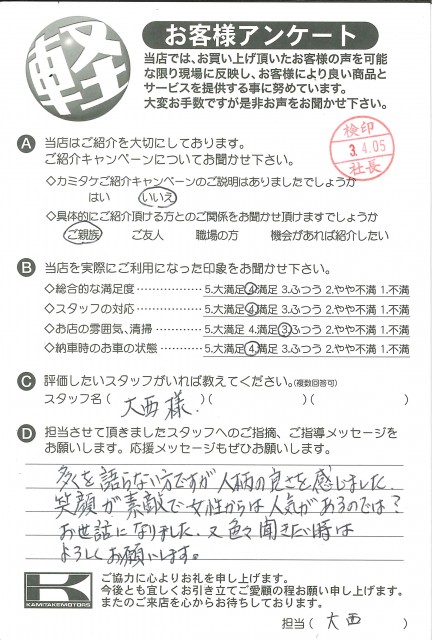 軽
お客様アンケート
当店では、お買い上げ頂いたお客様の声を可能
な限り現場に反映し、お客様により良い商品と
サービスを提供する事に努めています。
大変お手数ですが是非お声をお聞かせ下さい。
検印
3.4.05
社長
A 当店はご紹介を大切にしております。
ご紹介キャンペーンについてお聞かせ下さい。
◇カミタケご紹介キャンペーンのご説明はありましたでしょうか
はい いいえ
◇具体的にご紹介頂ける方とのご関係をお聞かせ頂けますでしょうか
ご親族 ご友人 職場の方 機会があれば紹介したい
B 当店を実際にご利用になった印象をお聞かせ下さい。
◇総合的な満足度 ……………… 5.大満足 4.満足 3.ふつう 2.やや不満 1.不満
◇スタッフの対応 ……………… 5.大満足 4.満足 3.ふつう 2.やや不満 1.不満
◇お店の雰囲気、清掃 ………… 5.大満足 4.満足 3.ふつう 2.やや不満 1.不満
◇納車時のお車の状態 ………… 5.大満足 4.満足 3.ふつう 2.やや不満 1.不満
C 評価したいスタッフがいれば教えてください。(複数回答可)
スタッフ名( 大西様. )( )( )
D 担当させて頂きましたスタッフへのご指摘、ご指導メッセージを
お願いします。応援メッセージもぜひお願いします。
多くを語らない方ですが人柄の良さを感じました.
笑顔が素敵で女性からは人気があるのでは?
お世話になりました. 又色々聞きたい時は
よろしくお願いします。
K
KAMITAKEMOTORS
ご協力に心よりお礼を申し上げます。
今後とも宜しくお引き立てご愛顧の程お願い申し上げます。
またのご来店を心からお待ちしております。
担当( 大西 )